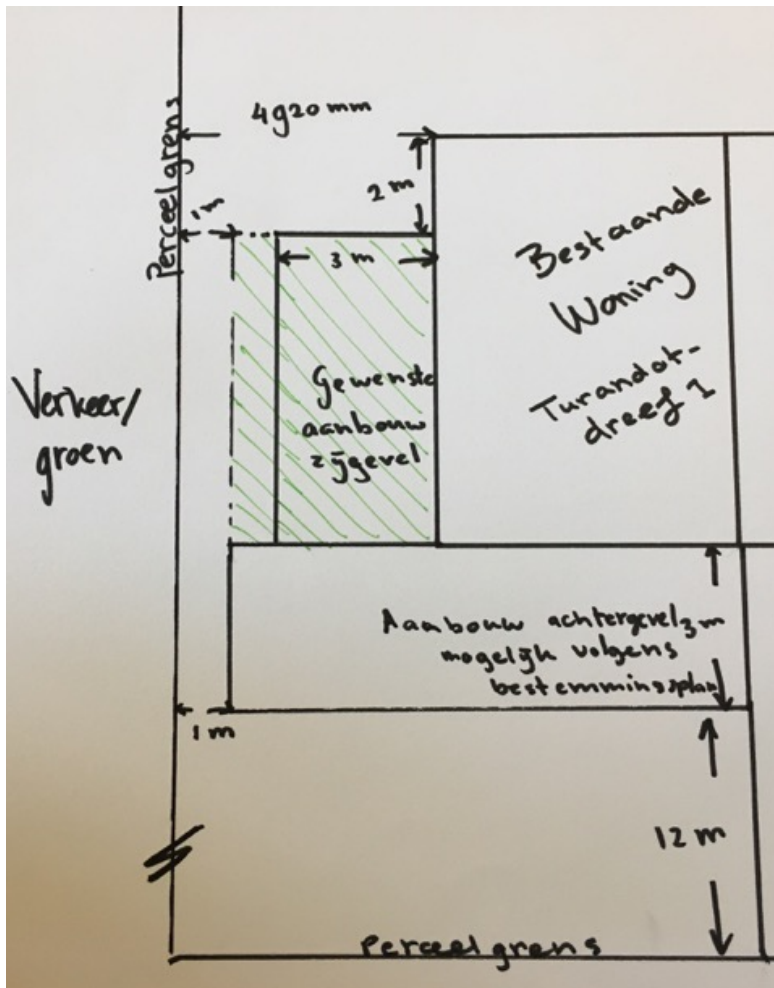 4920 mm
Perceelgrens
2 m
1 m
3 m
Bestaande
Woning
Turandot-
dreef 1
Verkeer/
groen
Gewenste
aanbouw
zijgevel
Aanbouw achtergevel 3 m
mogelijk volgens
bestemminsplan
1 m
12 m
Perceelgrens